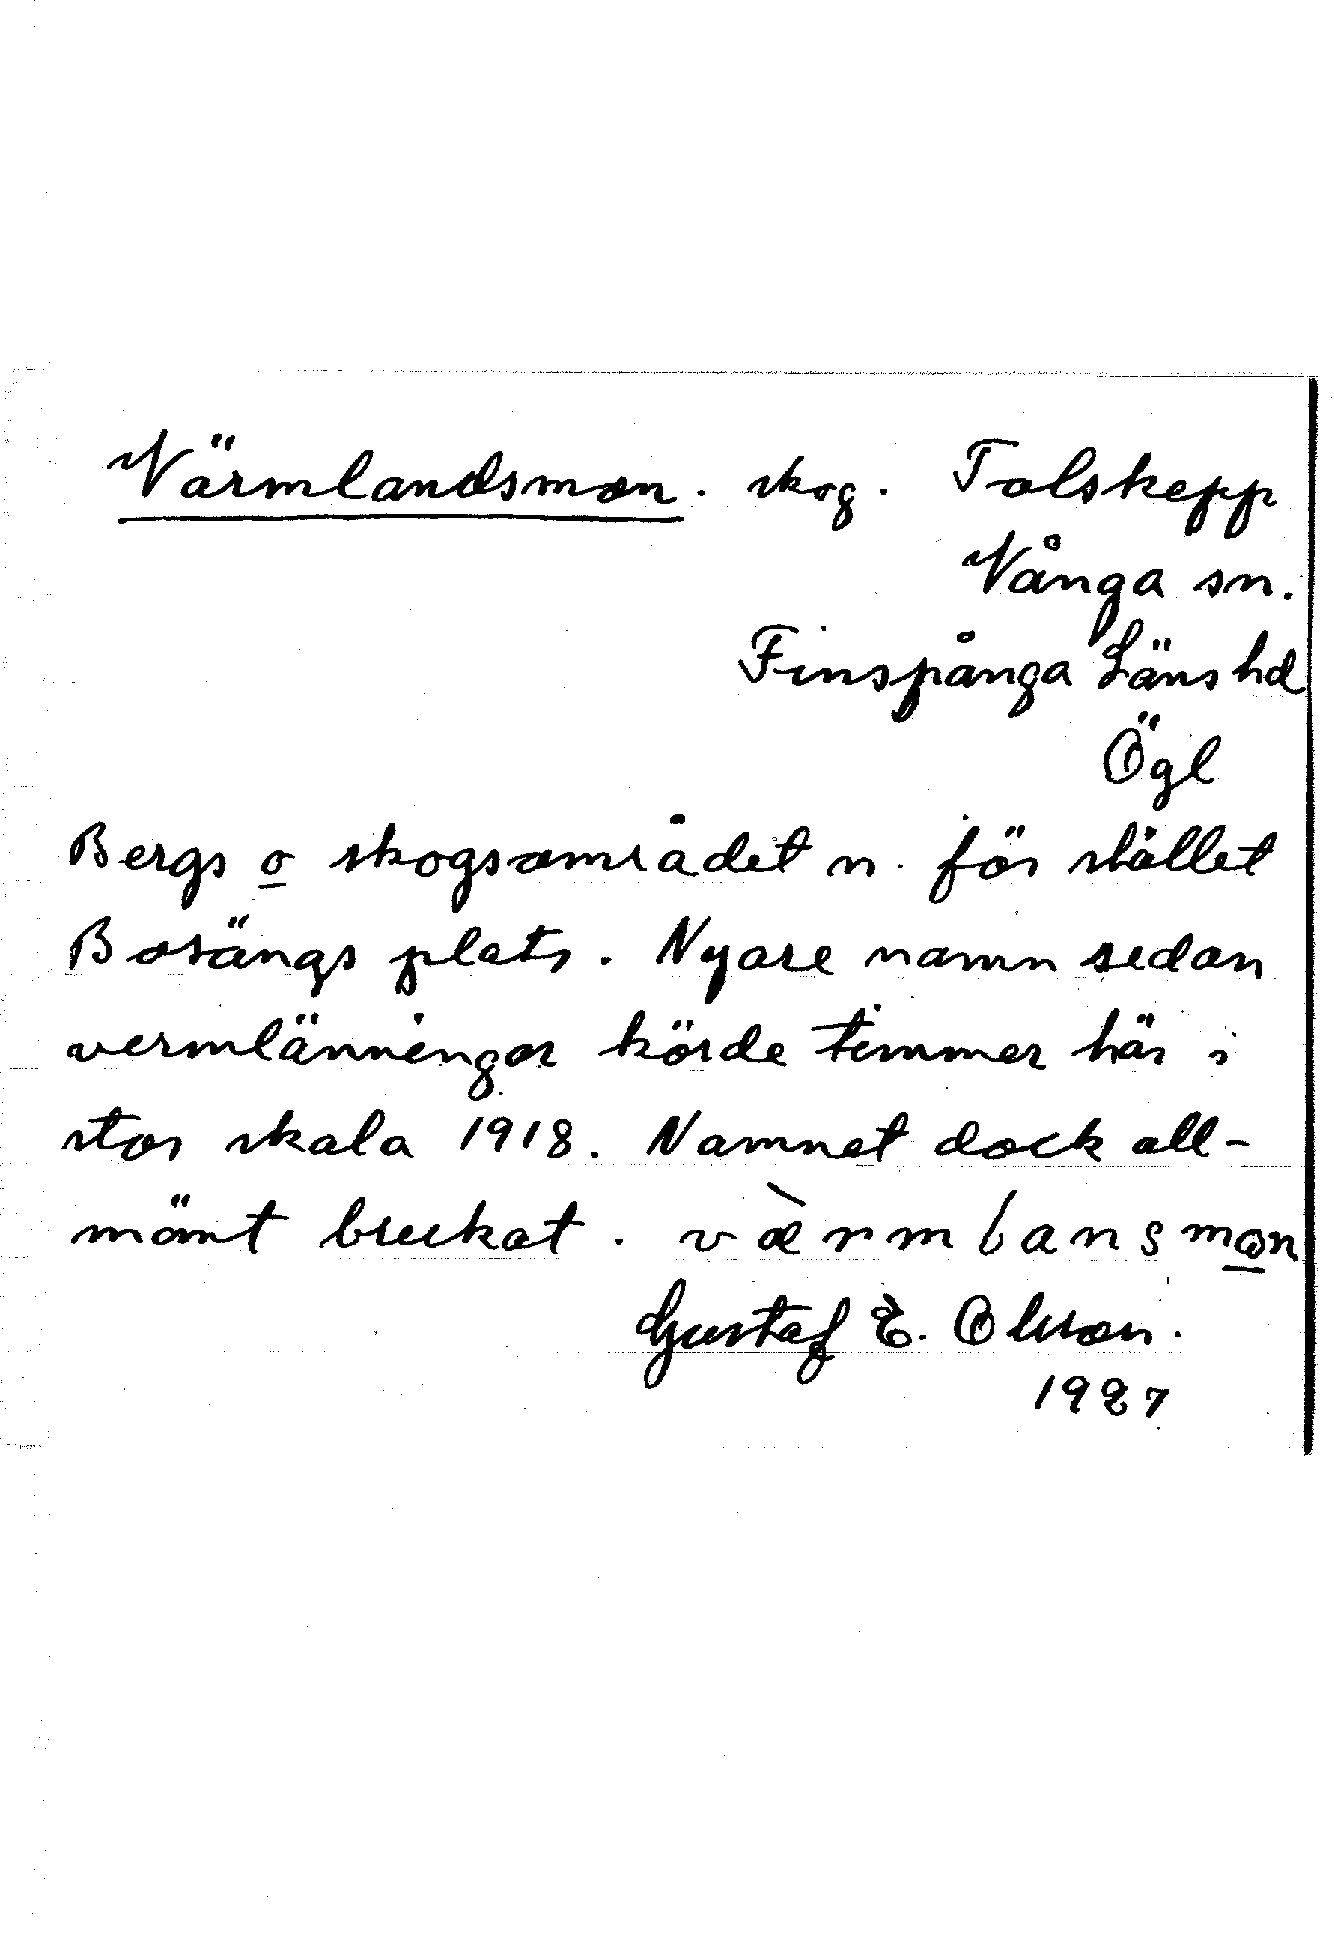 Värmlandsmon. skog. Tolskepp
Vånga sn.
Finspånga Läns hd
Ögl
Bergs o skogsområdet n. för stället
Bosängs plats. Nyare namn sedan
vermlänningar körde timmer här i
stor skala 1918. Namnet dock all-
mänt bruckat. værmlansmon
Gustaf E. Olsson.
1927